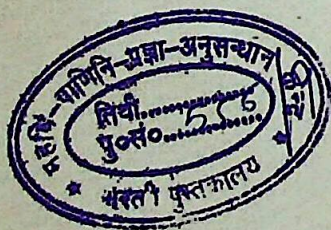 महर्षि-पाणिनि-प्रज्ञा-अनुसन्धान
तिथी...............
पु०सं०..............
* भरती पुस्तकालय *